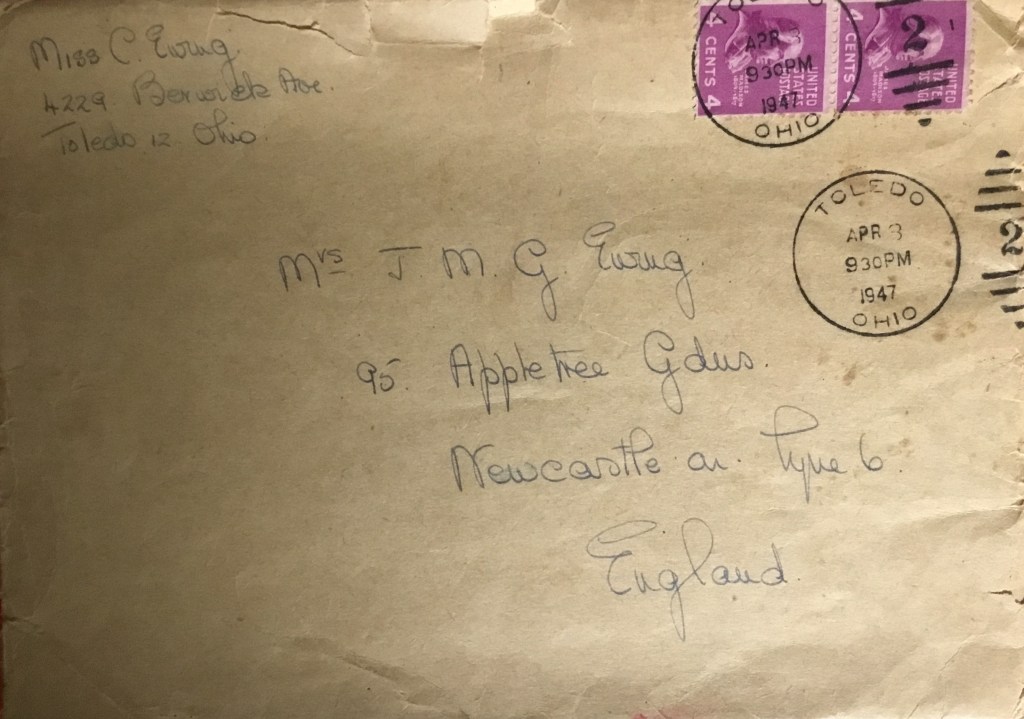 Miss C. Ewing
4229 Berwick Ave.
Toledo 12 Ohio.
4 CENTS 4
UNITED
STATES
POSTAGE
4 CENTS 4
UNITED
STATES
POSTAGE
APR 3
930PM
1947
OHIO
2
TOLEDO
APR 3
930PM
1947
OHIO
2
Mrs J. M. G. Ewing.
95. Appletree Gdns.
Newcastle on. Tyne 6.
England.